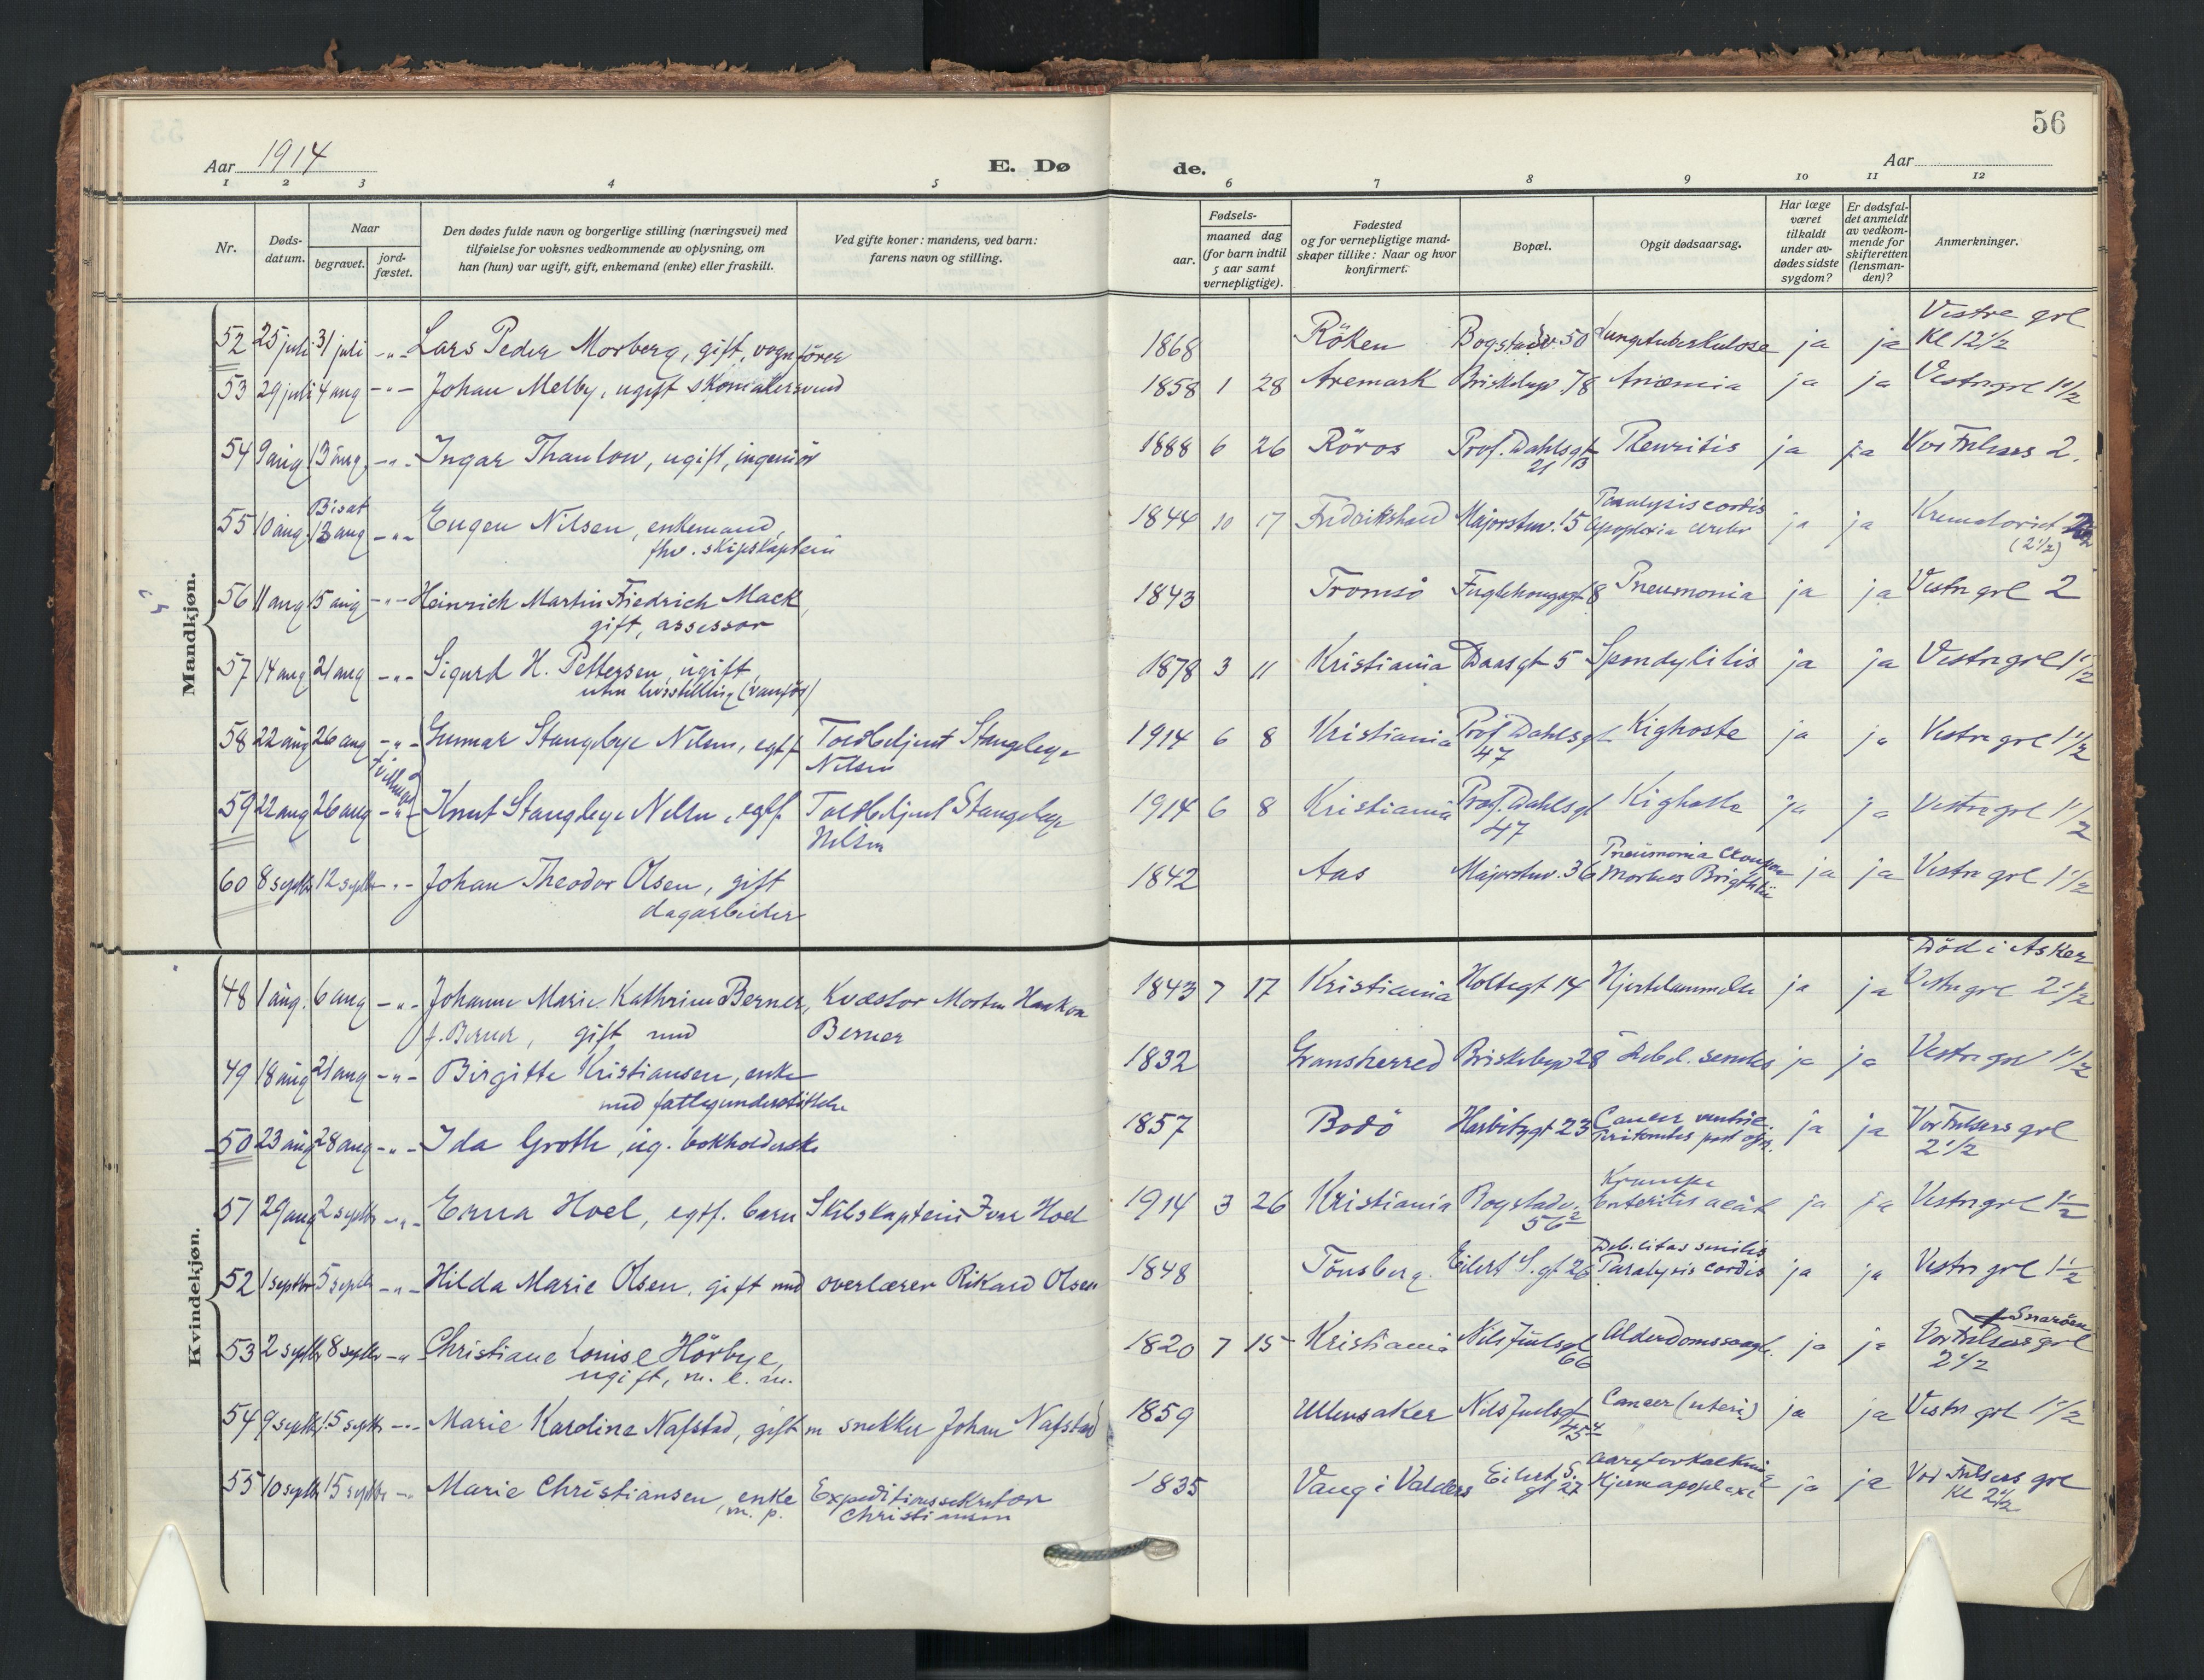 56
Aar 1914 E. Dø de. Aar
1 2 3 4 5 6 7 8 9 10 11 12
Nr.
Døds-
datum.
Naar
begravet.
jord-
fæstet.
Den dødes fulde navn og borgerlige stilling (næringsvei) med
tilføielse for voksnes vedkommende av oplysning, om
han (hun) var ugift, gift, enkemand (enke) eller fraskilt.
Ved gifte koner: mandens, ved barn:
farens navn og stilling.
Fødsels-
aar.
maaned dag
(for barn indtil
5 aar samt
vernepligtige).
Fødested
og for vernepligtige mand-
skaper tillike: Naar og hvor
konfirmert.
Bopæl.
Opgit dødsaarsag.
Har læge
været
tilkaldt
under av-
dødes sidste
sygdom?
Er dødsfal-
det anmeldt
av vedkom-
mende for
skifteretten
(lensman-
den)?
Anmerkninger.
Mandkjøn.
52 25 juli 31 juli -"- Lars Peder Morberg, gift, vognfører 1868 Röken Bogstadv. 50 Lungetuberkulose ja ja Vestre grl
Kl 12 1/2
53 29 juli 4 aug -"- Johan Melby, ugift 1858 1 28 Aremark Briskebyv. 78 Anæmia ja ja Vestre grl 1 1/2
54 9 aug 13 aug. -"- Ingar Thaulow, ugift, ingeniör 1888 6 26 Röros Prof. Dahlsgt Pleuritis ja ja Vor Frelsers 2.
21
55 10 aug. Bisat 13 aug -"- Eugen Nilsen, enkemand, 1844 10 17 Fredrikshald Majorstuv. 15 Paralysis cordis
fhv. skipskaptein Apoplexia cerebr ja ja Krematoriet
(2 1/2)
56 11 aug 15 aug -"- Heinrich Martin Friedrich Mack, 1843 Tromsö Fuglehaugsgt 8 Pneumonia ja ja Vestre grl 2
gift, assessor
57 14 aug 21 aug -"- Sigurd H. Pettersen, ugift, 1878 3 11 Kristiania Daasgt 5 Spondylitis ja ja Vestre grl 1 1/2
uten livsstilling (vanför)
58 22 aug 26 aug -"- Gunnar Stangebye Nilsen, egtf. Toldbetjent Stangebye 1914 6 8 Kristiania Prof Dahlsgt Kighoste ja ja Vestre grl 1 1/2
Nilsen 47
tvillinger
59 22 aug 26 aug -"- Knut Stangebye Nilsen, egtf. Toldbetjent Stangebye 1914 6 8 Kristiania Prof. Dahlsgt Kighoste ja ja Vestre grl 1 1/2
Nilsen 47
60 8 septbr 12 septbr -"- Johan Theodor Olsen, gift 1842 Aas Majorstuv. 36 Pneumonia
dagarbeider Morbus Brigthii ja ja Vestre grl 1 1/2
Kvindekjøn.
48 1 aug. 6 aug -"- Johanne Marie Kathrine Berner, Kvæstor Morten Haakon 1843 7 17 Kristiania Holtegt 14 Hjertelammelse ja ja Död i Asker
Vestre grl 2 1/2
f. Berner, gift med Berner
49 18 aug 21 aug -"- Birgitte Kristiansen, enke 1832 Gransherred Briskebyv 28 Debil. senilis ja ja Vestre grl 1 1/2
med fattigunderstöttelse
50 23 aug 28 aug -"- Ida Groth, ug. bokholderske 1857 Bodö Harbitzgt 23 Cancer ventric.
Peritonitis post op. ja ja Vor Frelsers grl
2 1/2
51 29 aug 2 septbr -"- Erna Hoel, egtf. barn Skibskaptein Iver Hoel 1914 3 26 Kristiania Bogstadv. Krampe
56 Enteritis acut ja ja Vestre grl 1 1/2
52 1 septbr 5 septbr -"- Hilda Marie Olsen, gift med overlærer Rikard Olsen 1848 Tönsberg. Eilert S. gt 26 Debilitas senilis
Paralysis cordis ja ja Vestre grl 1 1/2
53 2 septbr 8 septbr -"- Christiane Louise Hörbye, 1820 7 15 Kristiania Nils Juelsgt Alderdomssvagh. ja ja Snaröen
ugift, m. e. m. 66 Vor Frelsers grl
2 1/2
54 9 septbr 15 septbr -"- Marie Karoline Nafstad, gift m snekker Johan Nafstad 1859 Ullensaker Nils Juelsgt Cancer (uteri) ja ja Vestre grl 1 1/2
55 10 septbr 15 septbr -"- Marie Christiansen, enke Expeditionssekretær 1835 Vang i Valders Eilert S. Aareforkalkning
m. p. Christiansen gt 27 Hjerneapoplexi ja ja Vor Frelsers grl
Kl 2 1/2